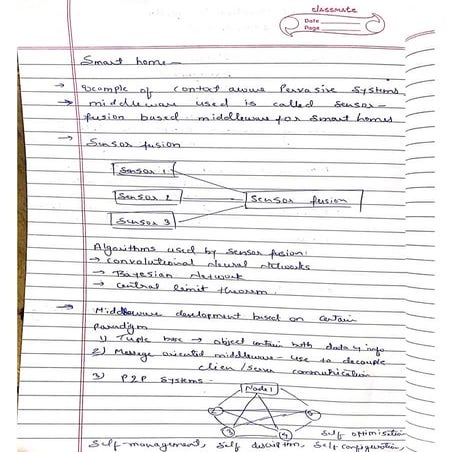 classmate
Date
Page
Smart home —
→ example of context aware Pervasive Systems
→ middleware used is called sensor-
fusion based middleware for smart homes
→ Sensor fusion
Sensor 1
Sensor 2
Sensor fusion
Sensor 3
Algorithms used by sensor fusion
→ convolutional Neural Networks
→ Bayesian Network
→ central limit theorem
→ Middleware development based on certain
paradigm
1) Tuple base → object contain both data & info
2) Message oriented middleware - use to decouple
client/server communication
3) P2P Systems -
Node 1
2
5
3
4
Self optimisation
Self management, Self discription, Self configuration,